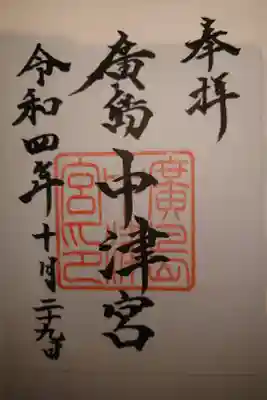 奉拝
廣島中津宮
令和四年十月二十九日